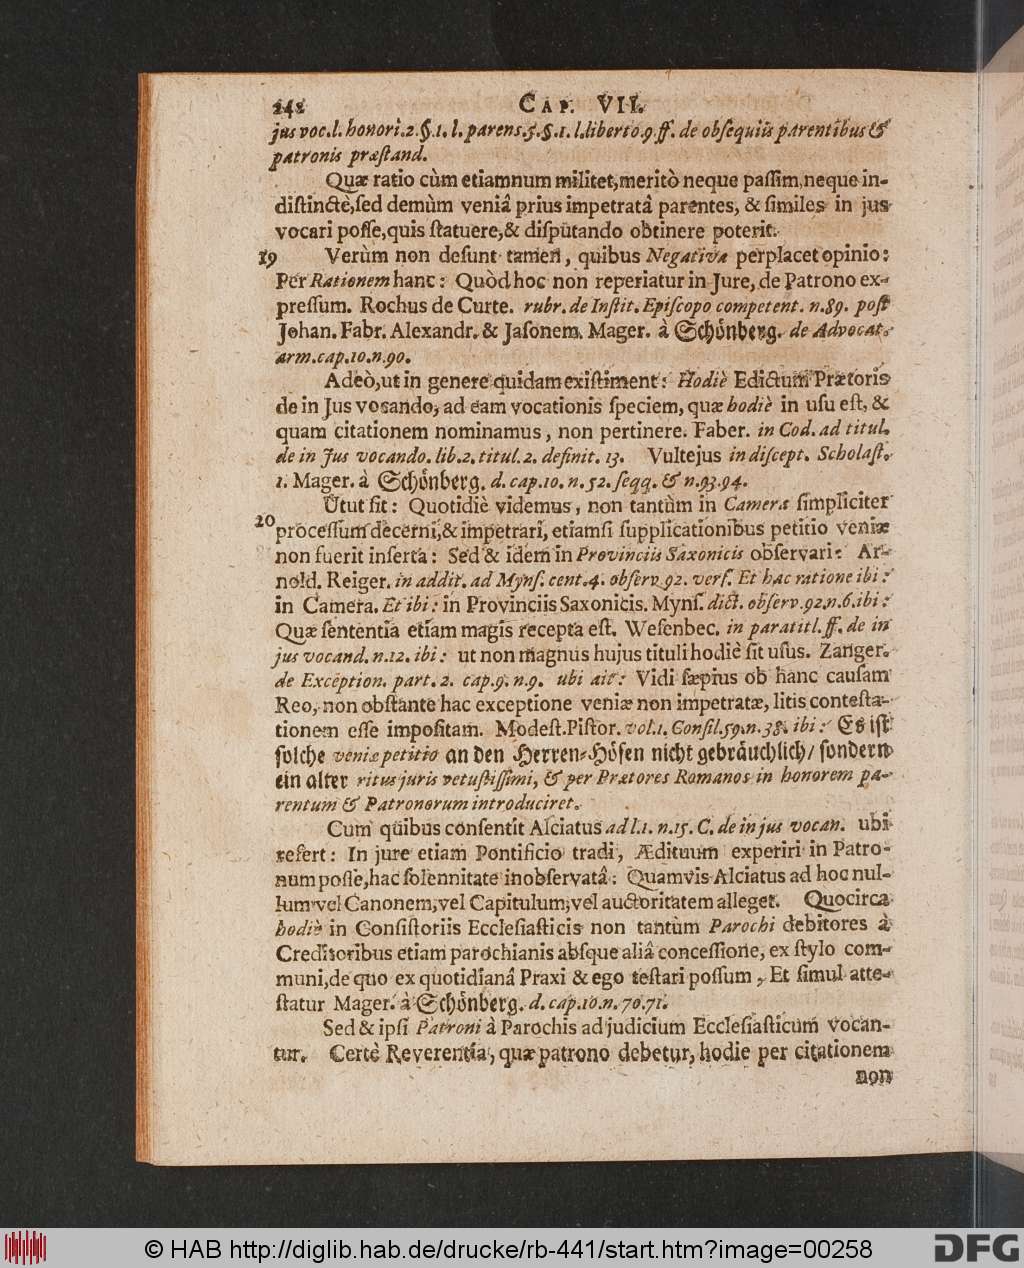 242 CAP. VII.
jus voc. l. honori. 2. §. 1. l. parens. 5. §. 1. l. liberto. 9. ff. de obsequiis parentibus &
patronis præstand.
Quæ ratio cùm etiamnum militet, meritò neque passim, neque in-
distinctè, sed demùm veniâ prius impetratâ parentes, & similes in jus
vocari posse, quis statuere, & disputando obtinere poterit.
19 Verùm non desunt tamen, quibus Negativa perplacet opinio:
Per Rationem hanc: Quòd hoc non reperiatur in Jure, de Patrono ex-
pressum. Rochus de Curte. rubr. de Instit. Episcopo competent. n. 89. post
Johan. Fabr. Alexandr. & Jasonem. Mager. à Schönberg. de Advocat.
arm. cap. 10. n. 90.
Adeò, ut in genere quidam existiment: Hodiè Edictum Prætoris
de in Jus vocando, ad eam vocationis speciem, quæ hodiè in usu est, &
quam citationem nominamus, non pertinere. Faber. in Cod. ad titul.
de in Jus vocando. lib. 2. titul. 2. definit. 13. Vultejus in discept. Scholast.
1. Mager. à Schönberg. d. cap. 10. n. 52. seqq. & n. 93. 94.
Utut sit: Quotidiè videmus, non tantùm in Camera simpliciter
20 processum decerni, & impetrari, etiamsi supplicationibus petitio veniæ
non fuerit inserta: Sed & idem in Provinciis Saxonicis observari: Ar-
nold. Reiger. in addit. ad Myns. cent. 4. observ. 92. vers. Et hac ratione ibi:
in Camera. Et ibi: in Provinciis Saxonicis. Myns. dict. observ. 92. n. 6. ibi:
Quæ sententia etiam magis recepta est. Wesenbec. in paratitl. ff. de in
jus vocand. n. 12. ibi: ut non magnus hujus tituli hodiè sit usus. Zanger.
de Exception. part. 2. cap. 9. n. 9. ubi ait: Vidi sæpius ob hanc causam
Reo, non obstante hac exceptione veniæ non impetratæ, litis contesta-
tionem esse impositam. Modest. Pistor. vol. 1. Consil. 59. n. 38. ibi: Es ist
solche veniæ petitio an den Herren-Höfen nicht gebräuchlich/ sondern
ein alter ritus juris vetustissimi, & per Prætores Romanos in honorem pa-
rentum & Patronorum introduciret.
Cum quibus consentit Alciatus ad l. 1. n. 15. C. de in jus vocan. ubi
refert: In jure etiam Pontificio tradi, Ædituum experiri in Patro-
num posse, hac solennitate inobservatâ: Quamvis Alciatus ad hoc nul-
lum vel Canonem, vel Capitulum, vel auctoritatem alleget. Quocirca
hodiè in Consistoriis Ecclesiasticis non tantùm Parochi debitores à
Creditoribus etiam parochianis absque aliâ concessione, ex stylo com-
muni, de quo ex quotidianâ Praxi & ego testari possum, Et simul atte-
statur Mager. à Schönberg. d. cap. 10. n. 70. 71.
Sed & ipsi Patroni à Parochis ad judicium Ecclesiasticum vocan-
tur. Certè Reverentia, quæ patrono debetur, hodie per citationem
non
© HAB http://diglib.hab.de/drucke/rb-441/start.htm?image=00258 DFG